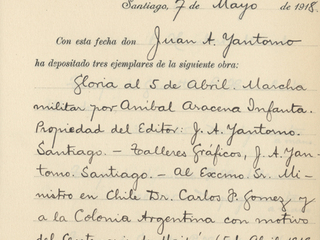 Santiago, 7 de Mayo de 1918.
Con esta fecha don Juan A. Yantorno
ha depositado tres ejemplares de la siguiente obra:
Gloria al 5 de Abril. Marcha
militar por Anibal Aracena Infanta.
Propiedad del Editor: J. A. Yantorno.
Santiago. — Talleres Gráficos, J. A. Yan-
torno. Santiago. — Al Excmo. Sr. Mi-
nistro en Chile Dr. Carlos F. Gomez y
a la Colonia Argentina con motivo
del Centenario de Maipú (5 de Abril 1918